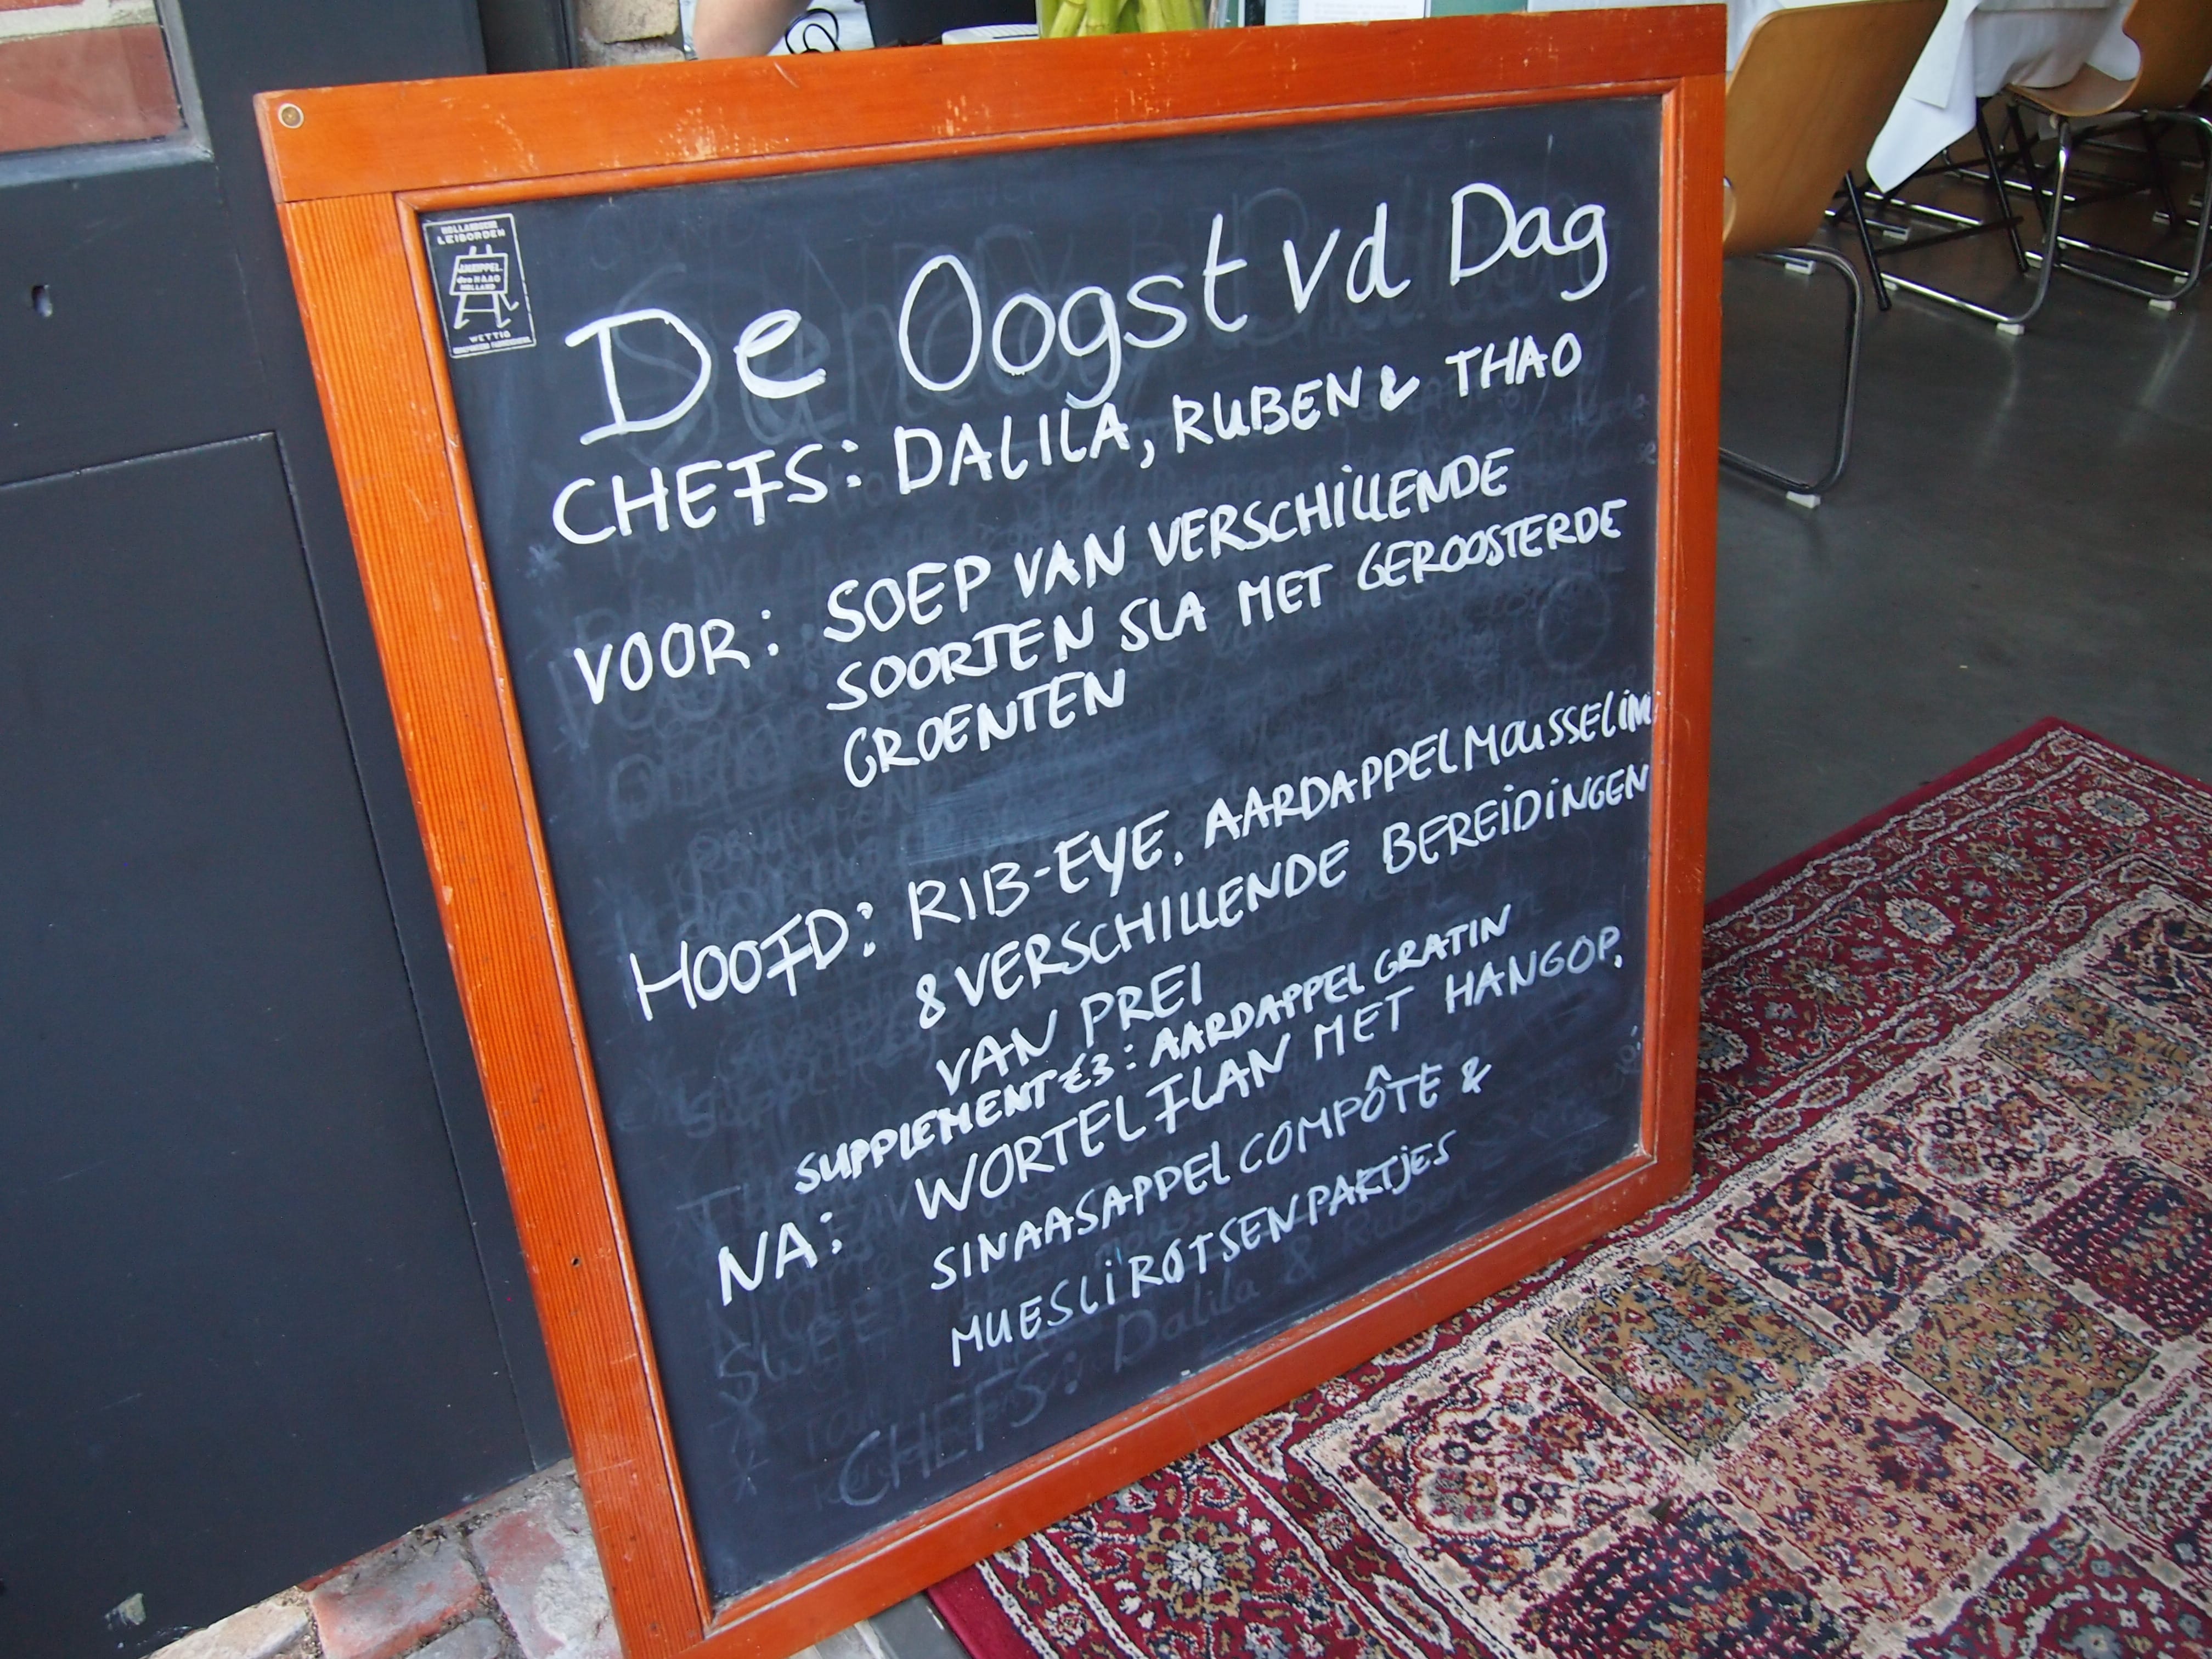 HOLLANDSCHE
LEIBORDEN
JAN KIPPEL.
den HAAG
HOLLAND
WETTIG
De Oogst vd Dag
CHEFS: DALILA, RUBEN & THAO
VOOR: SOEP VAN VERSCHILLENDE
SOORTEN SLA MET GEROOSTERDE
GROENTEN
HOOFD: RIB-EYE, AARDAPPELMOUSSELINE
& VERSCHILLENDE BEREIDINGEN
VAN PREI
SUPPLEMENT €3: AARDAPPELGRATIN
NA: WORTELFLAN MET HANGOP,
SINAASAPPELCOMPÔTE &
MUESLIROTSENPARTJES
CHEFS: Dalila & Ruben